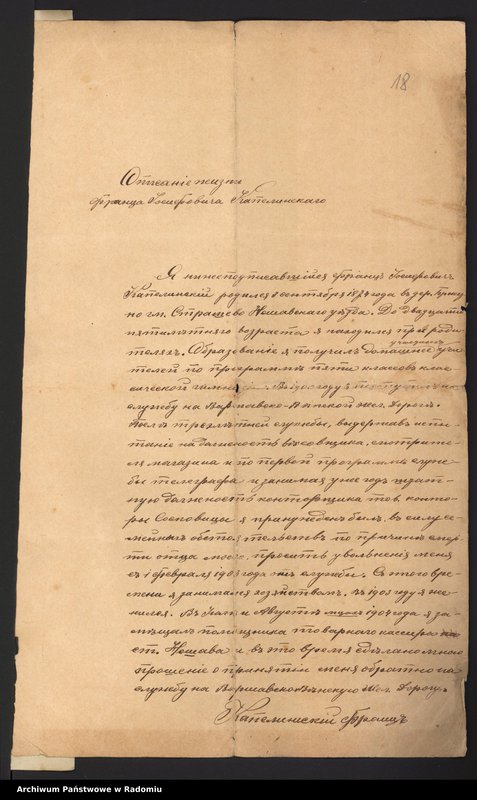 18
Описаніе жизни
Франца Іосифовича Капелинскаго
Я нижеподписавшійся Францъ Іосифовичъ
Капелинскій родился 8 сентября 1874 года въ дер.
но гм. Страшево Нешавскаго уѣзда. До двадцати
пятилѣтняго возраста я находился при роди-
теляхъ. Образованіе я получилъ домашнее
телей по программѣ пяти классовъ клас-
сической гимназіи. Въ 1900 году я поступилъ на
службу на Варшавско-Вѣнской жел. дорогѣ.
Послѣ трехлѣтней службы, выдержавъ испы-
таніе на должность вѣсовщика, смотрите-
ля магазина и по первой программѣ служ-
бы телеграфа и занимая уже годъ штат-
ную должность конторщика тов. конто-
ры Сосновицы я принужденъ былъ, въ силу се-
мейныхъ обстоятельствъ по причинѣ смер-
ти отца моего, просить увольненія меня
съ 1 февраля 1903 года отъ службы. Съ того вре-
мени я занимался хозяйствомъ. въ 1903 году я же-
нился. Въ Іюлѣ и Августѣ 1904 года я за-
мѣщалъ помощника товарнаго кассира
ст. Нешава и въ это время сдѣлано много
прошеніе о принятіи меня обратно на
службу на Варшавско Вѣнскую жел. дорогу.
Капелинскій Францъ
Archiwum Państwowe w Radomiu